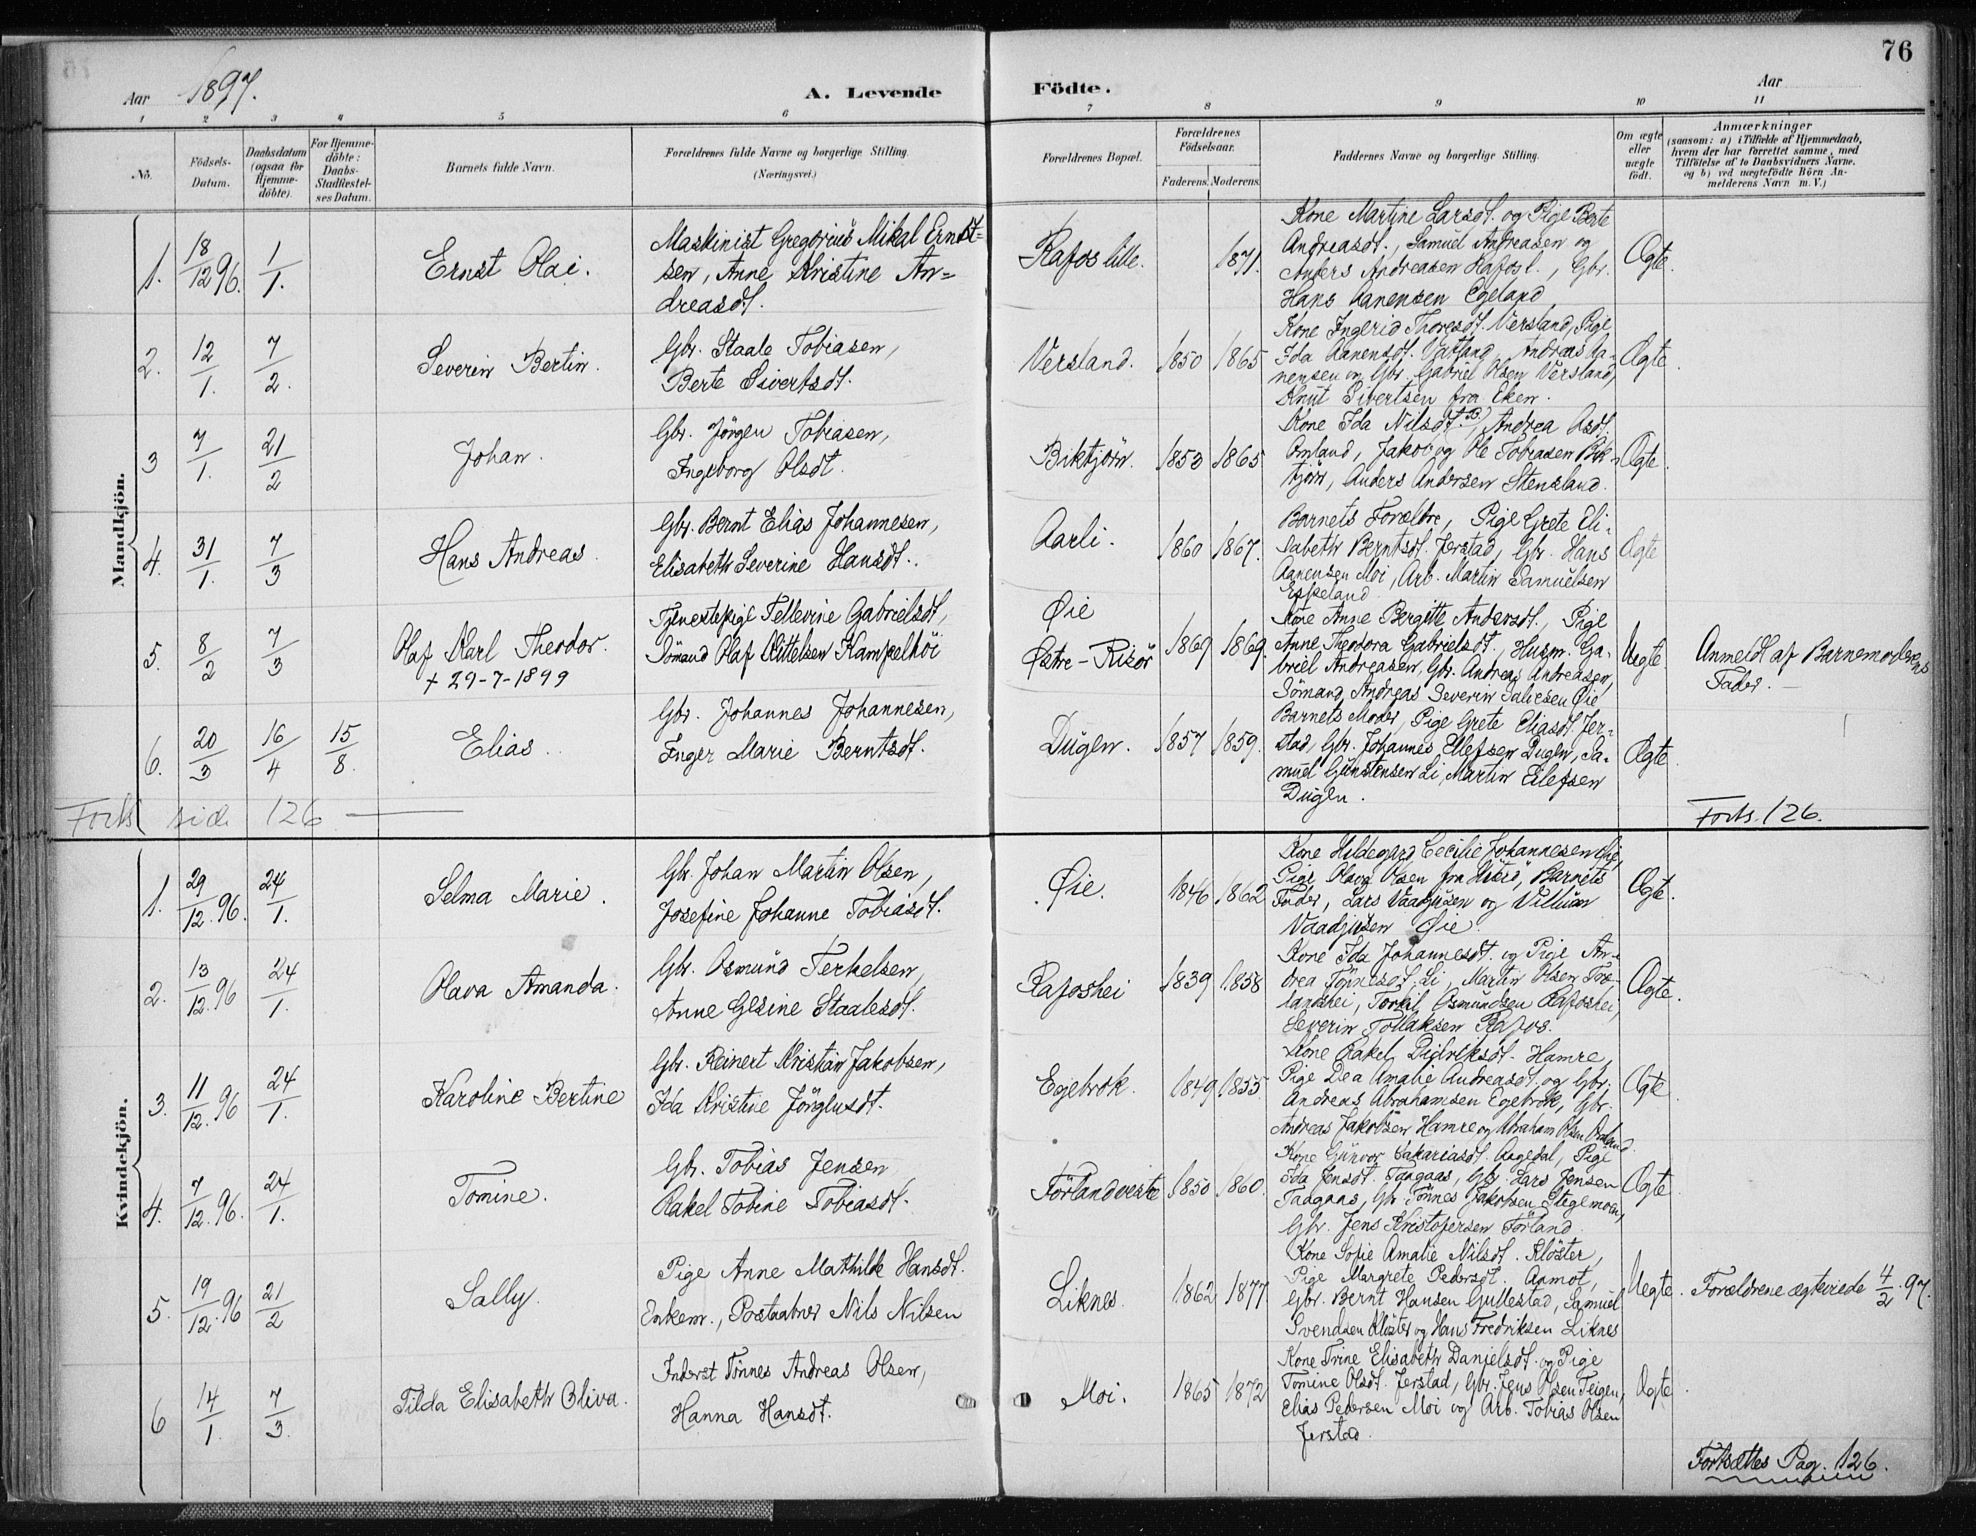 76
Aar 1897.
A. Levende Födte.
Aar
1 2 3 4 5 6 7 8 9 10 11
No.
Födsels-Datum.
Daabsdatum (ogsaa for Hjemme-döbte).
For Hjemme-döbte: Daabs-Stadfæstel-ses Datum.
Barnets fulde Navn.
Forældrenes fulde Navne og borgerlige Stilling.
(Næringsvei.)
Forældrenes Bopæl.
Forældrenes Födselsaar.
Faderens. Moderens.
Faddernes Navne og borgerlige Stilling.
Om ægte eller uægte födt.
Anmærkninger
(saasom: a) i Tilfælde af Hjemmedaab,
hvem der har forrettet samme, med
Tilföielse af to Daabsvidners Navne.
og b) ved uægtefödte Börn An-
melderens Navn m. V.)
Mandkjön.
1. 18/12 96. 1/1.
Ernst Olai.
Maskinist Gregorius Mikal Ernst-
sen, Anne Kristine An-
dreasdt.
Rafos lille. 1871.
Kone Martine Larsdt. og Pige Berte
Andreasdt., Samuel Andreasen og
Anders Andreasen Rafosl., Gbr.
Hans Aanensen Egeland
Ægte.
2. 12/1. 7/2.
Severin Bertin.
Gbr. Staale Tobiasen,
Berte Sivertsdt.
Versland. 1850 1865
Kone Ingerid Thoresdt. Versland, Pige
Ida Aanensdt. Vatland, Andreas Aa-
nensen og Gbr. Gabriel Olsen Versland,
Knut Sivertsen fra Eken.
Ægte.
3 7/1. 21/2
Johan.
Gbr. Jörgen Tobiasen,
Ingeborg Olsdt.
Biktjörn. 1853 1865
Kone Ida Nilsdt. B., Andrea Asdt.
Omland, Jakob og Ole Tobiasen Bik-
tjörn, Anders Andersen Stensland.
Ægte.
4. 31/1. 7/3
Hans Andreas.
Gbr. Bernt Elias Johannesen,
Elisabeth Severine Hansdt.
Aarli. 1860 1867.
Barnets Forældre, Pige Grete Eli-
sabeth Berntsdt. Jerstad, Gbr. Hans
Aanensen Moi, Arb. Martin Samuelsen
Eskeland.
Ægte
5. 8/2 7/3
Olaf Karl Theodor.
+ 29-7-1899
Tjenestepige Tellevine Gabrielsdt,
Sömand Olaf Kittelsen Kampelhöi
Øie
Østre-Risör 1869 1869.
Kone Anne Bergitte Andersdt., Pige
Anne Theodora Gabrielsdt., Husm. Ga-
briel Andreasen, Gbr. Andreas Andreasen,
Sömand Andreas Severin Salvesen Øie
Uægte
Anmeldt af Barnemoderens
Fader.
6. 20/3 16/4 15/8.
Elias.
Gbr. Johannes Johannesen,
Inger Marie Berntsdt.
Dugen. 1857 1859.
Barnets Moder, Pige Grete Eliasdt. Jer-
stad, Gbr. Johannes Ellefsen Dugen, Sa-
muel Gunstensen Li, Martin Eilefsen
Dugen.
Ægte
Forts side 126
Forts. 126.
Kvindekjön.
1. 29/12 96. 24/1.
Selma Marie.
Gbr. Johan Martin Olsen,
Josefine Johanne Tobiasdt.
Øie. 1846 1862
Kone Hildegard Cecilie Johannesen Øie,
Pige Olava Olsen fra Hiterö, Barnets
Fader, Lars Vaadjusen og Villum
Vaadjusen Øie.
Ægte.
2. 13/12 96 24/1.
Olava Amanda.
Gbr. Osmund Terkelsen,
Anne Gesine Staalesdt.
Rafoshei 1839 1858
Kone Ida Johannesdt. og Pige An-
drea Tönnesdt. Li, Martin Olsen
landshei, Torkil Osmundsen Rafoshei,
Severin Tollaksen Rafos.
Ægte.
3. 11/12 96 24/1.
Karoline Bertine
Gbr. Reinert Kristian Jakobsen,
Ida Kristine Jörgensdt.
Egebrok. 1849 1855.
Kone Rakel Didriksdt. Hamre,
Pige Dea Amalie Andreasdt. og Gbr.
Andreas Abrahamsen Egebrok, Gbr.
Andreas Jakobsen Hamre og Abraham Olsen
Ægte
4. 7/12 96. 24/1.
Tomine.
Gbr. Tobias Jensen
Rakel Tobine Tobiasdt.
Förland vestre 1850 1860.
Kone Gunvor Sakariasdt. Aagedal, Pige
Ida Jensdt. Taagaas, Gbr. Lars Jensen
Taagaas, Gbr. Tönnes Jakobsen Stegemoen,
Gbr. Jens Kristofersen Förland.
Ægte
5. 19/12 96 21/2
Sally.
Pige Anne Mathilde Hansdt.
Enkem., Postaabner Nils Nilsen
Liknes. 1862 1877
Kone Sofie Amalie Nilsdt. Klöster,
Pige Margrete Pedersdt. Aamot,
Gbr. Bernt Hansen Gullestad, Samuel
Svendsen Klöster og Hans Fredriksen Liknes
Uægte.
Forældrene ægteviede 4/2 97.
6 14/1. 7/3.
Tilda Elisabeth Oliva.
Inderst Tönnes Andreas Olsen,
Hanna Hansdt.
Moi. 1865 1872
Kone Trine Elisabeth Danielsdt. og Pige
Tomine Olsdt. Jerstad, Gbr. Jens Olsen Teigen,
Elias Pedersen Moi og Arb. Tobias Olsen
Jerstad.
Ægte.
Fortsættes Pag. 126.